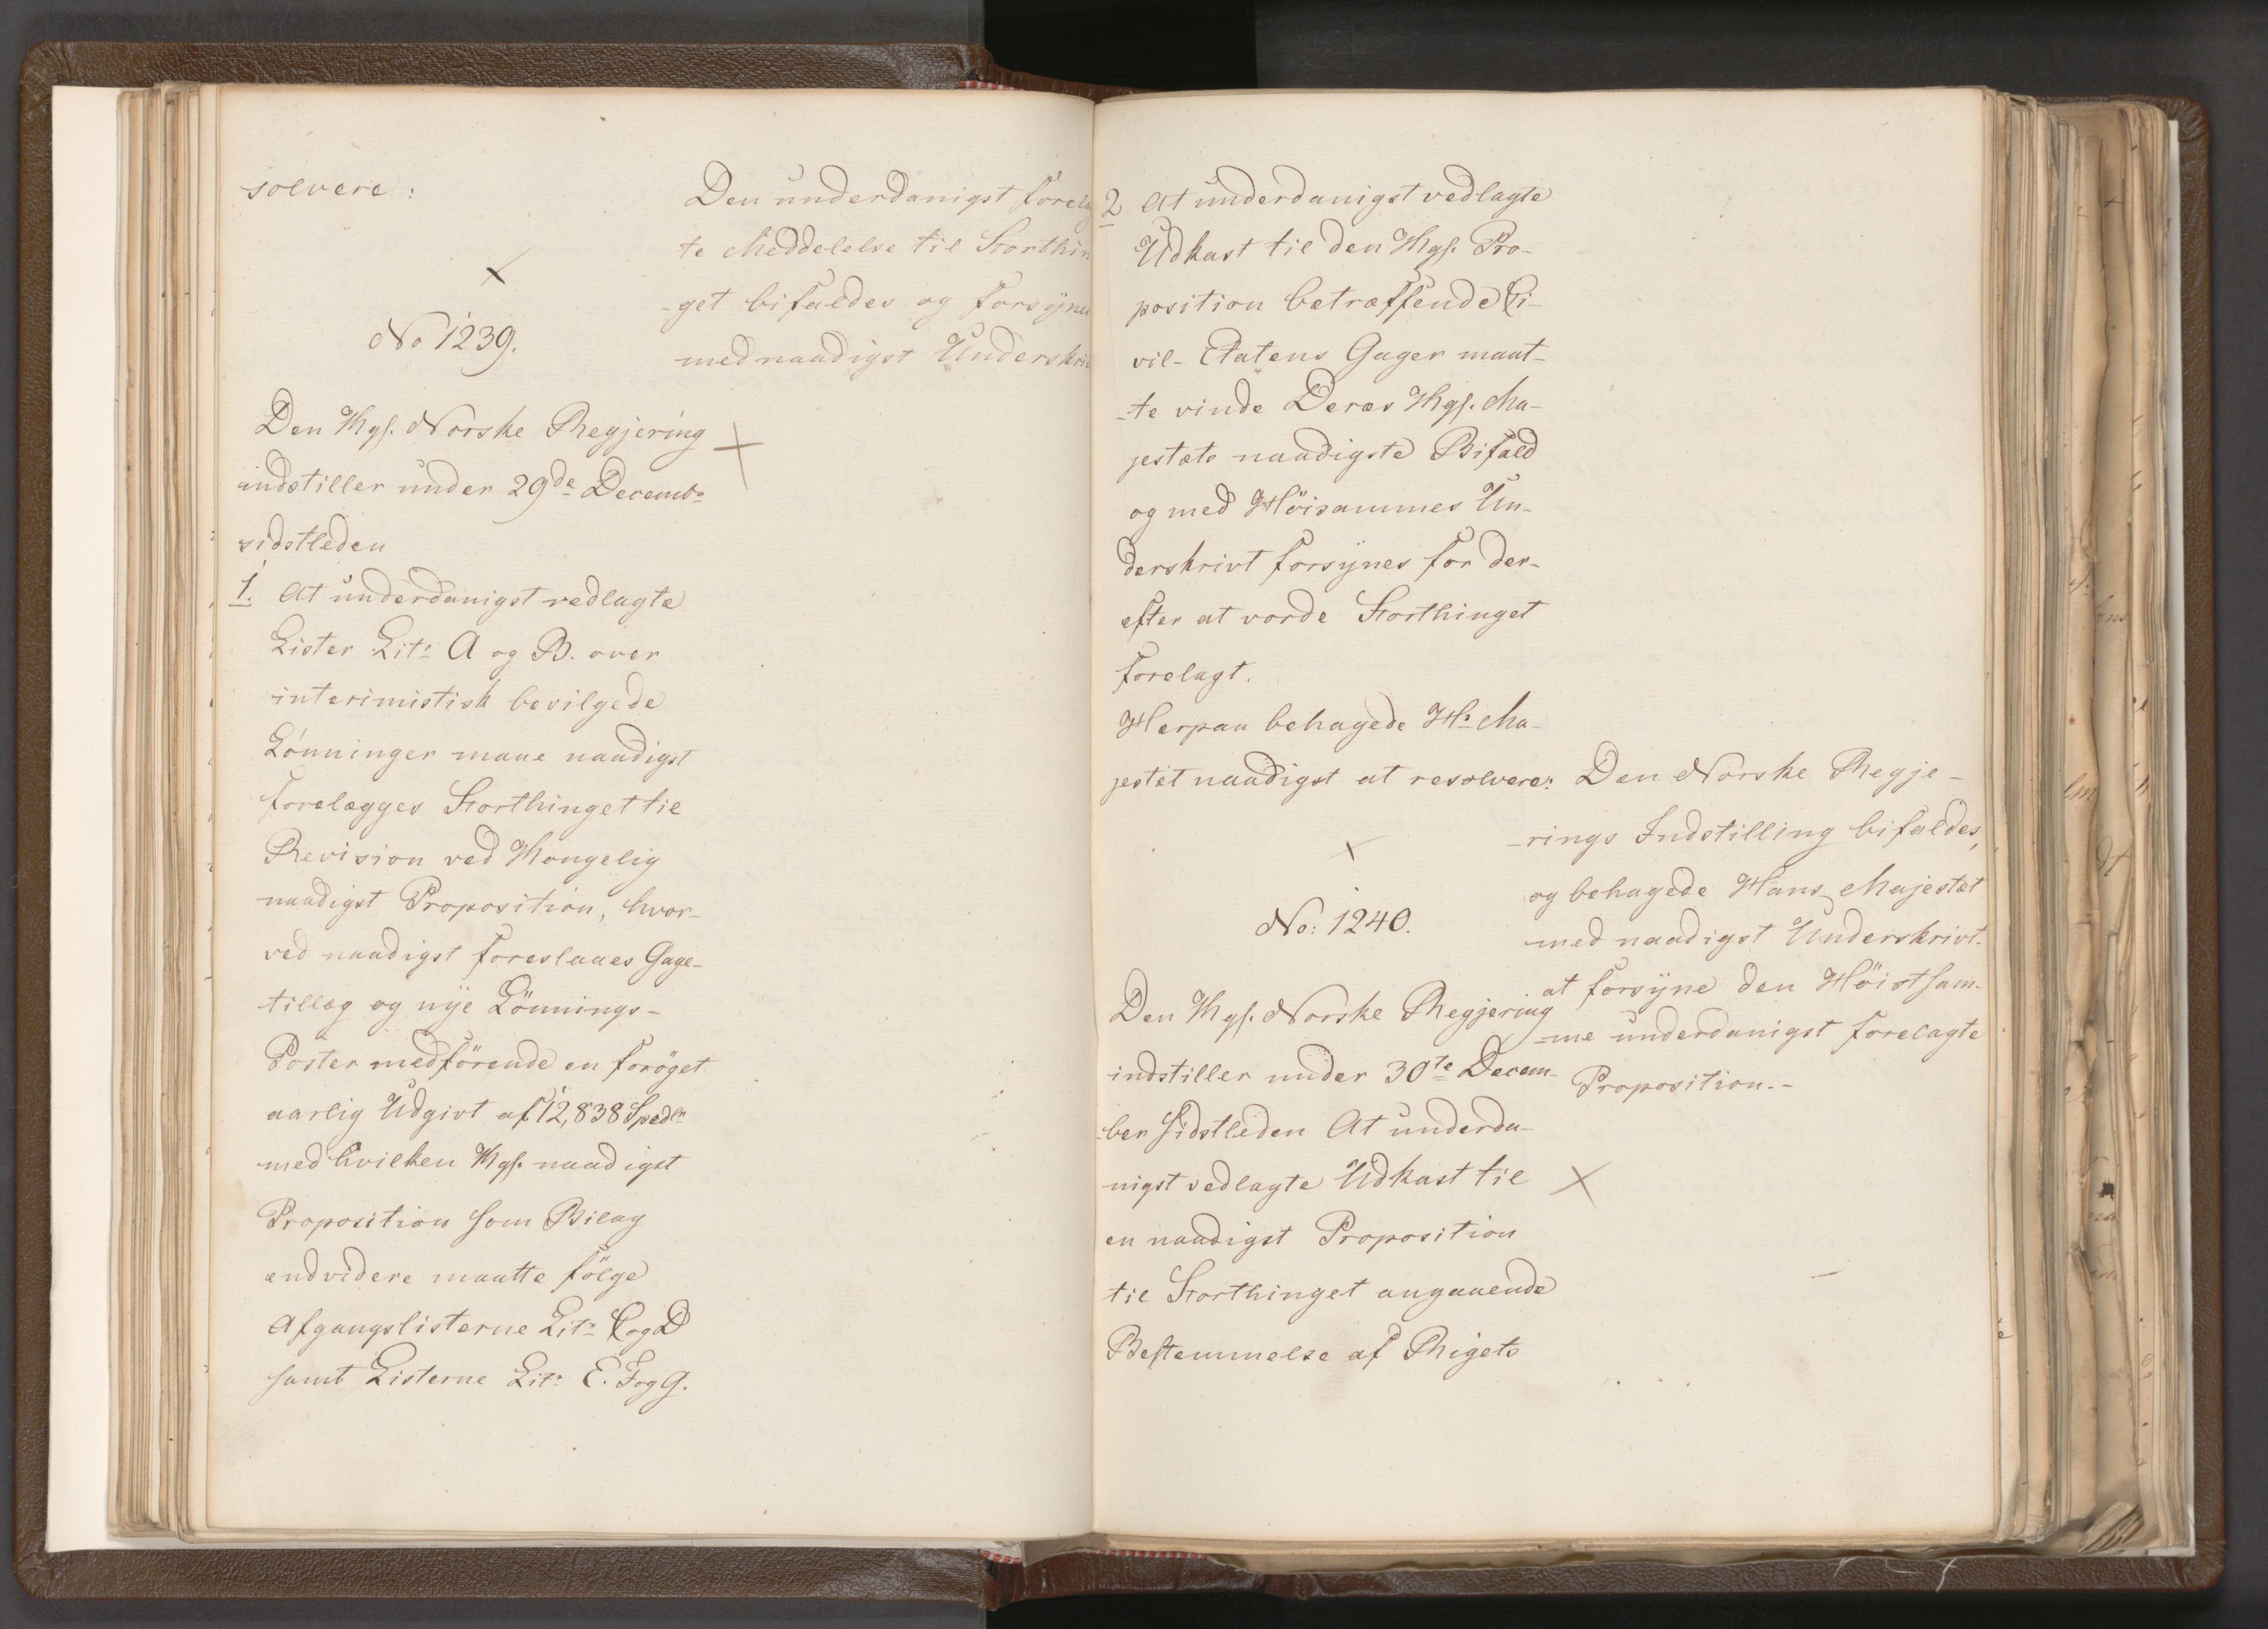 solvere:
Den underdanigst forelag
te Meddelelse til Storthin
-get bifaldes og forsynes
med naadigst Underskri
No 1239.
Den Kgl. Norske Regjering
indstiller under 29de Decembr
sidstleden
1. At underdanigst vedlagte
Lister Litr A og B. over
interimistisk bevilgede
Lønninger maae naadigst
forelægges Storthinget til
Revision ved Kongelig
naadigst Proposition, hvor-
ved naadigst foreslaaes Gage-
tillæg og nye Lönnings-
Poster medförende en foröget
aarlig Udgivt af 12,838 Spedlr
med hvilken Kgl. naadigst
Proposition som Bilag
endvidere maatte fölge
Afgangslisterne Litr C og D
samt Listerne Litr E. F og G.
2 At underdanigst vedlagte
Udkast til den Kgl. Pro-
position betræffende Ci-
vil-Etatens Gager maat-
-te vinde Deres Kgl. Ma-
jestæts naadigste Bifald
og med Höisammes Un-
derskrivt forsynes for der-
efter at vorde Storthinget
forelagt.
Herpaa behagede Hs Ma-
jestæt naadigst at resolvere:
Den Norske Regje-
-rings Indstilling bifaldes,
og behagede Hans Majestæt
med naadigst Underskrivt
at forsyne den Höistsam-
-me underdanigst forelagte
Proposition.-
No: 1240.
Den Kgl. Norske Regjering
indstiller under 30te Decem-
ber sidstleden At underda-
nigst vedlagte Udkast til
en naadigst Proposition
til Storthinget angaaende
Bestemmelse af Rigets